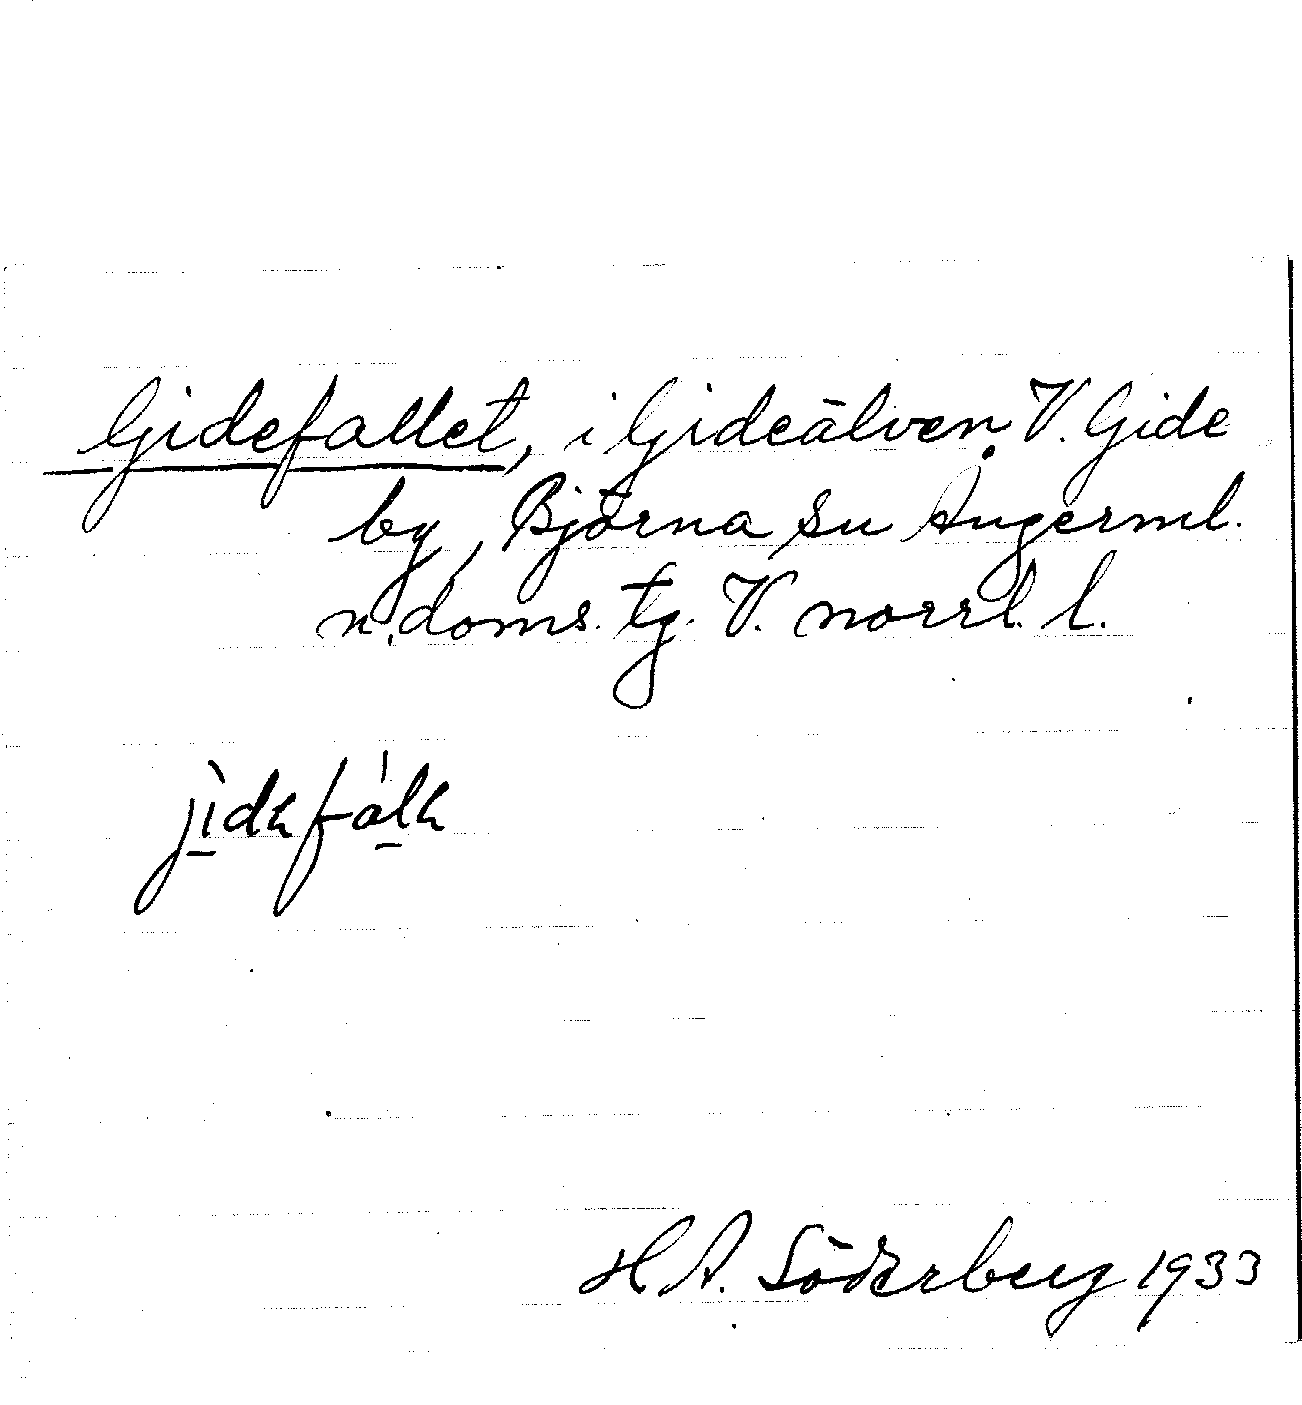 Gidefallet, i Gideälven V. Gide
by, Björna sn Ångerml.
n. doms. tg. V. norrl. l.
jìdɐfálɐ
H. A. Söderberg 1933